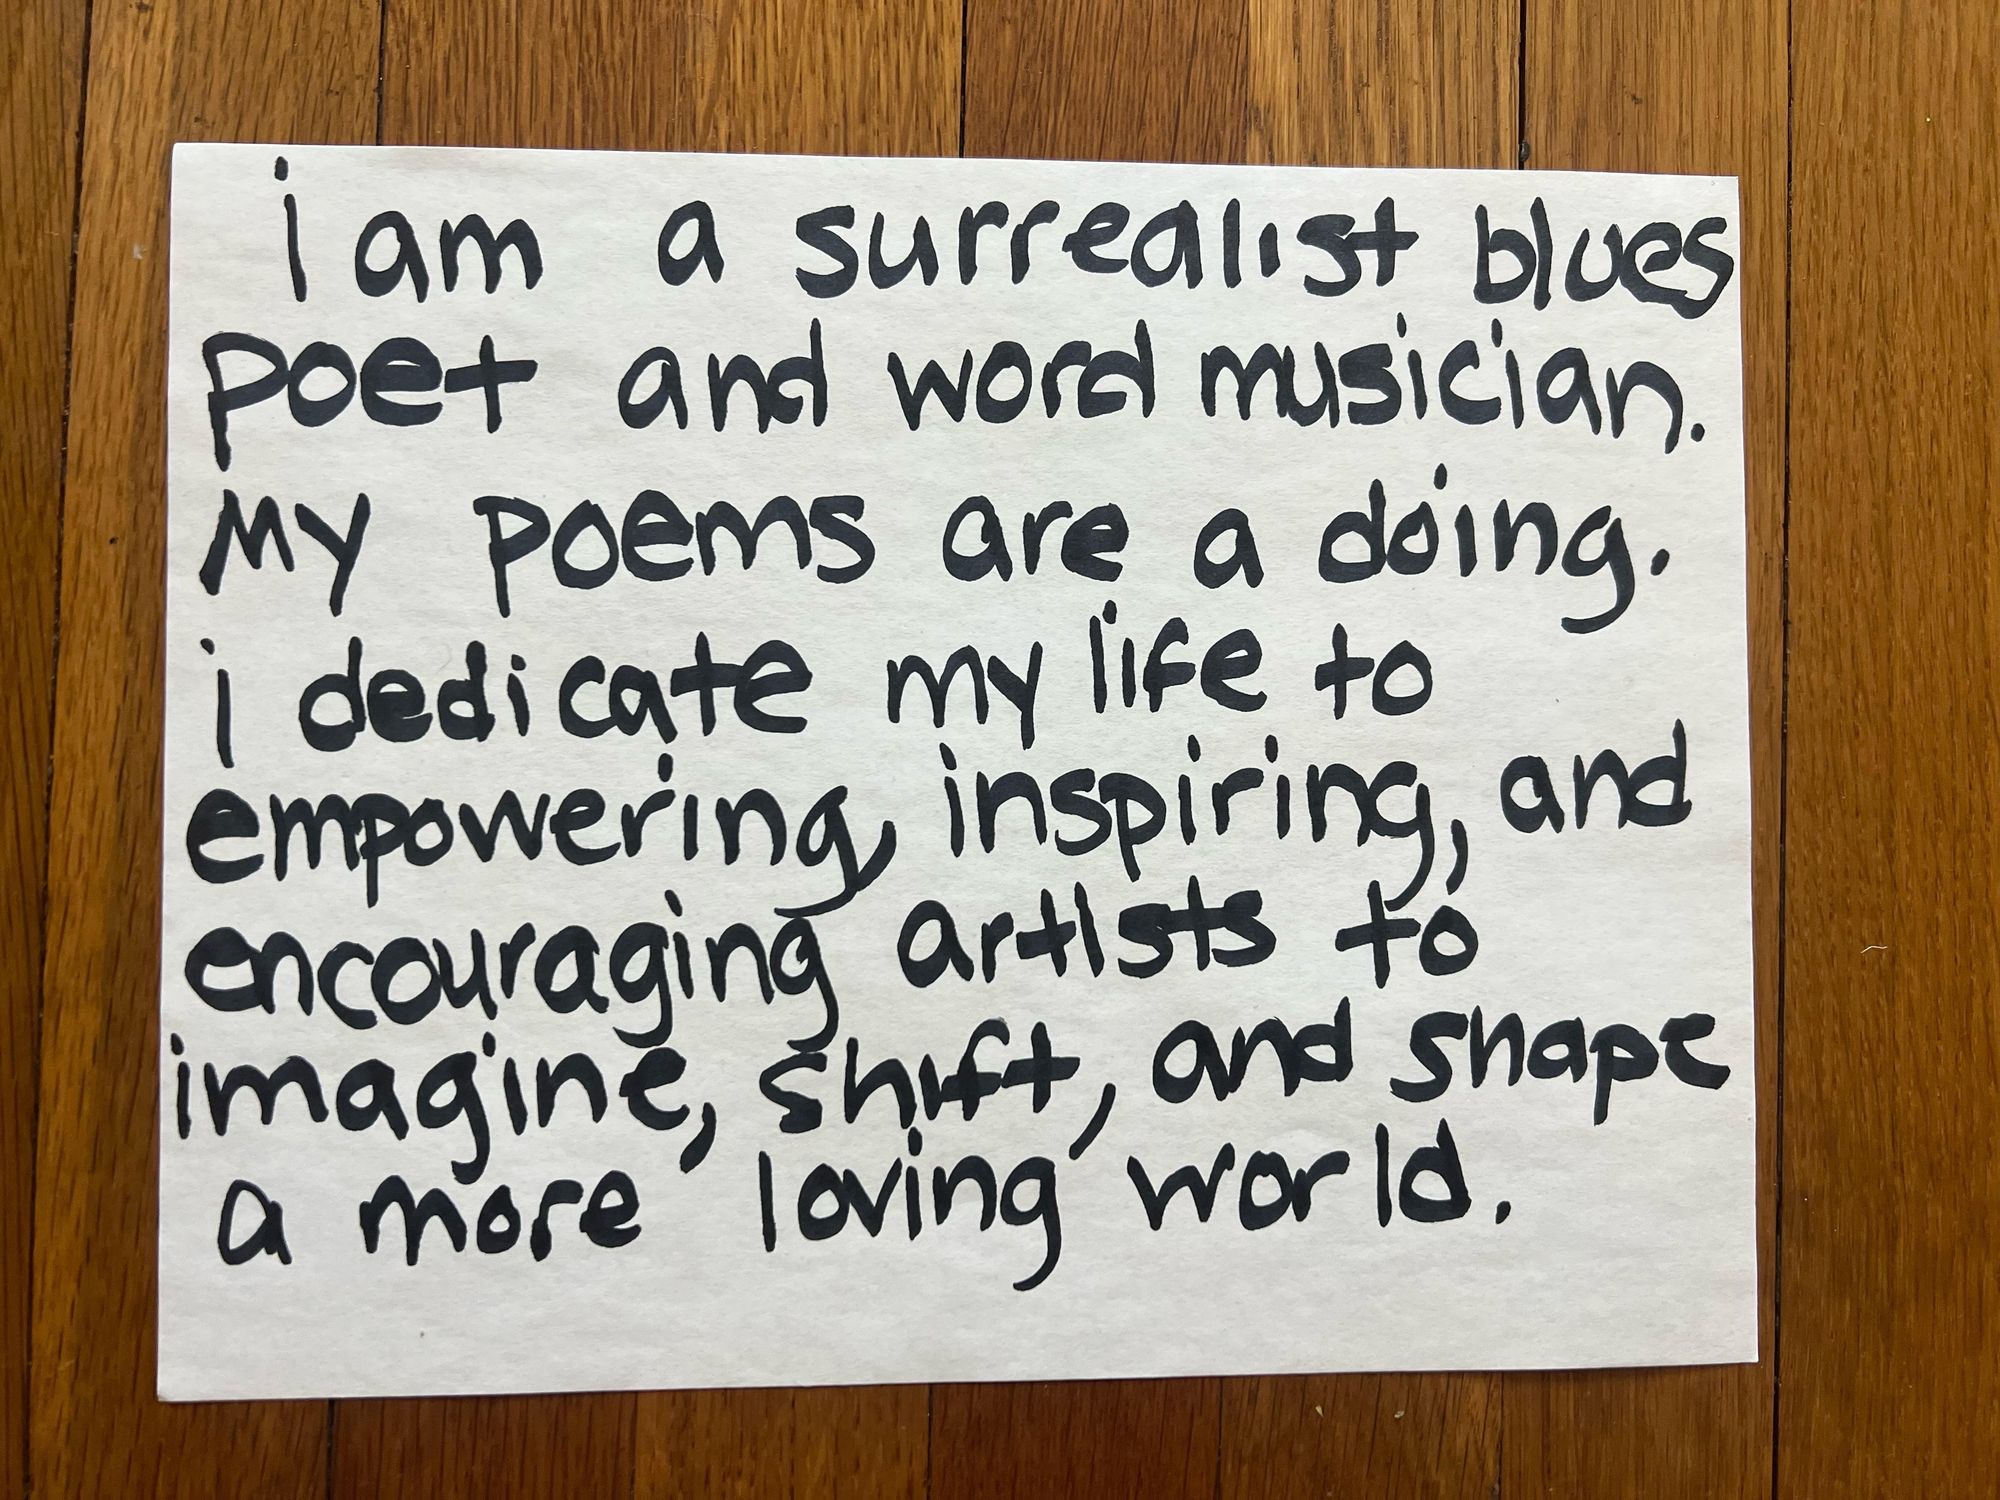 i am a surrealist blues
poet and word musician.
My poems are a doing.
i dedicate my life to
empowering, inspiring, and
encouraging artists to
imagine, shift, and shape
a more loving world.